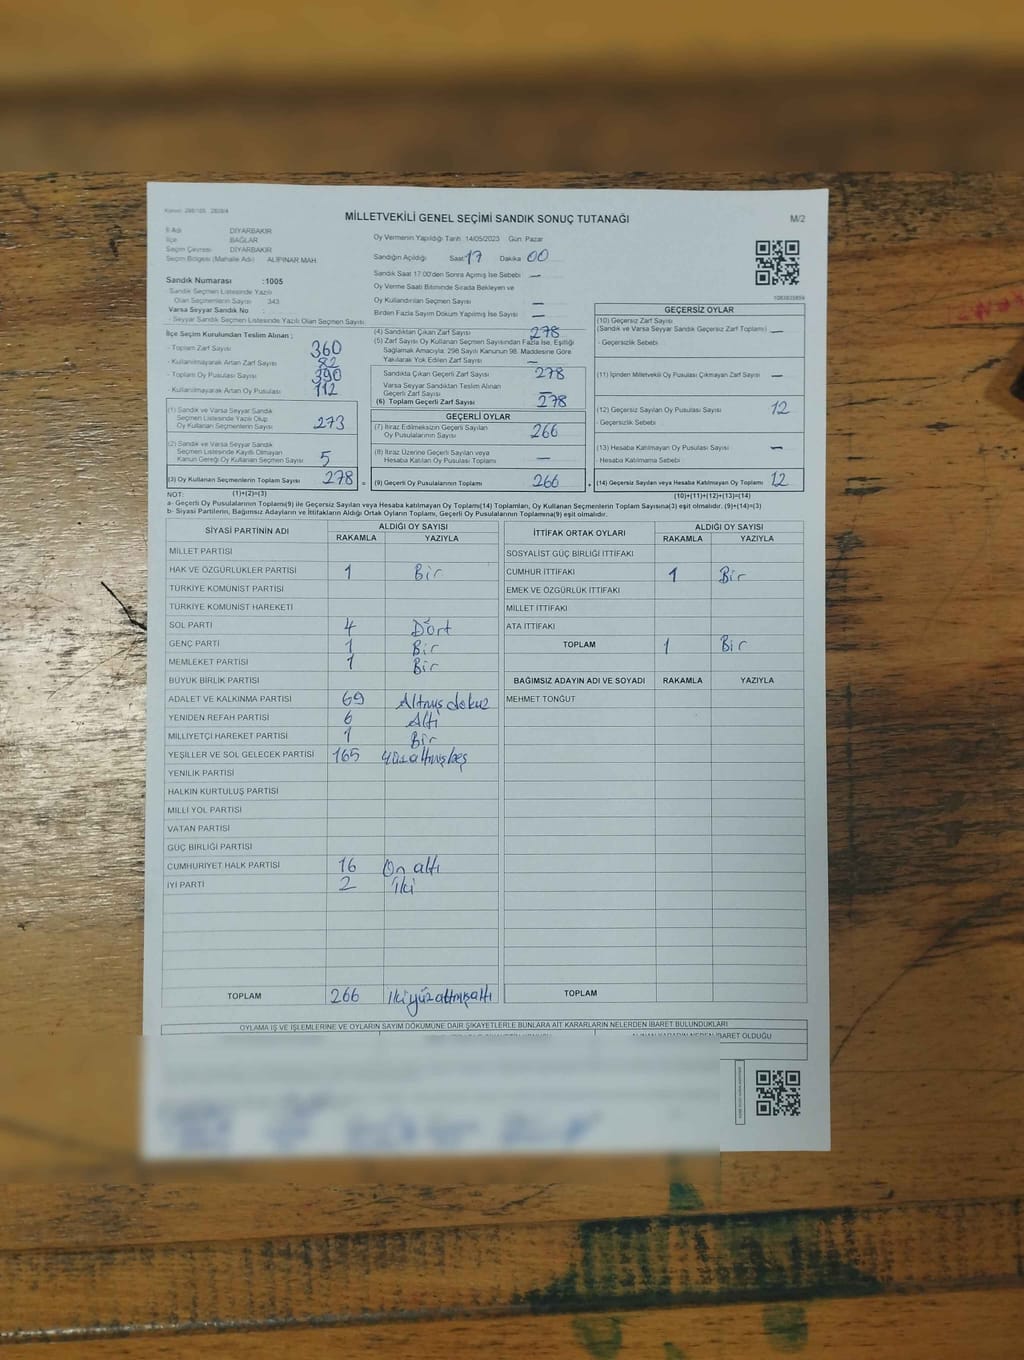 MİLLETVEKİLİ GENEL SEÇİMİ SANDIK SONUÇ TUTANAĞI
M/2
İl Adı DİYARBAKIR
İlçe BAĞLAR
Seçim Çevresi DİYARBAKIR
Seçim Bölgesi (Mahalle Adı) ALİPINAR MAH.
Sandık Numarası :1005
Sandık Seçmen Listesinde Yazılı
Olan Seçmenlerin Sayısı 343
Varsa Seyyar Sandık No
- Seyyar Sandık Seçmen Listesinde Yazılı Olan Seçmen Sayısı
İlçe Seçim Kurulundan Teslim Alınan ;
- Toplam Zarf Sayısı 360
- Kullanılmayarak Artan Zarf Sayısı 82
- Toplam Oy Pusulası Sayısı 390
- Kullanılmayarak Artan Oy Pusulası 112
(1) Sandık ve Varsa Seyyar Sandık
Seçmen Listesinde Yazılı Olup
Oy Kullanan Seçmenlerin Sayısı 273
(2) Sandık ve Varsa Seyyar Sandık
Seçmen Listesinde Kayıtlı Olmayan
Kanun Gereği Oy Kullanan Seçmen Sayısı 5
(3) Oy Kullanan Seçmenlerin Toplam Sayısı 278 =
Oy Vermenin Yapıldığı Tarih 14/05/2023 Gün: Pazar
Sandığın Açıldığı Saat 17 Dakika 00
Sandık Saat 17.00'den Sonra Açılmış İse Sebebi —
Oy Verme Saati Bitiminde Sırada Bekleyen ve
Oy Kullandırılan Seçmen Sayısı —
Birden Fazla Sayım Döküm Yapılmış İse Sayısı —
(4) Sandıktan Çıkan Zarf Sayısı 278
(5) Zarf Sayısı Oy Kullanan Seçmen Sayısından Fazla İse, Eşitliği
Sağlamak Amacıyla; 298 Sayılı Kanunun 98. Maddesine Göre
Yakılarak Yok Edilen Zarf Sayısı —
Sandıkta Çıkan Geçerli Zarf Sayısı 278
Varsa Seyyar Sandıktan Teslim Alınan
Geçerli Zarf Sayısı —
(6) Toplam Geçerli Zarf Sayısı 278
GEÇERLİ OYLAR
(7) İtiraz Edilmeksizin Geçerli Sayılan
Oy Pusulalarının Sayısı 266
(8) İtiraz Üzerine Geçerli Sayılan veya
Hesaba Katılan Oy Pusulası Toplamı —
(9) Geçerli Oy Pusulalarının Toplamı 266 +
1083835859
GEÇERSİZ OYLAR
(10) Geçersiz Zarf Sayısı
(Sandık ve Varsa Seyyar Sandık Geçersiz Zarf Toplamı) —
- Geçersizlik Sebebi
(11) İçinden Milletvekili Oy Pusulası Çıkmayan Zarf Sayısı —
(12) Geçersiz Sayılan Oy Pusulası Sayısı 12
- Geçersizlik Sebebi
(13) Hesaba Katılmayan Oy Pusulası Sayısı —
- Hesaba Katılmama Sebebi
(14) Geçersiz Sayılan veya Hesaba Katılmayan Oy Toplamı 12
NOT: (1)+(2)=(3) (10)+(11)+(12)+(13)=(14)
a- Geçerli Oy Pusulalarının Toplamı(9) ile Geçersiz Sayılan veya Hesaba Katılmayan Oy Toplamı(14) Toplamları, Oy Kullanan Seçmenlerin Toplam Sayısına(3) eşit olmalıdır. (9)+(14)=(3)
b- Siyasi Partilerin, Bağımsız Adayların ve İttifakların Aldığı Ortak Oyların Toplamı, Geçerli Oy Pusulalarının Toplamına(9) eşit olmalıdır.
SİYASİ PARTİNİN ADI ALDIĞI OY SAYISI
RAKAMLA YAZIYLA
MİLLET PARTİSİ
HAK VE ÖZGÜRLÜKLER PARTİSİ 1 Bir
TÜRKİYE KOMÜNİST PARTİSİ
TÜRKİYE KOMÜNİST HAREKETİ
SOL PARTİ 4 Dört
GENÇ PARTİ 1 Bir
MEMLEKET PARTİSİ 1 Bir
BÜYÜK BİRLİK PARTİSİ
ADALET VE KALKINMA PARTİSİ 69 Altmış dokuz
YENİDEN REFAH PARTİSİ 6 Altı
MİLLİYETÇİ HAREKET PARTİSİ 1 Bir
YEŞİLLER VE SOL GELECEK PARTİSİ 165 yüzaltmışbeş
YENİLİK PARTİSİ
HALKIN KURTULUŞ PARTİSİ
MİLLİ YOL PARTİSİ
VATAN PARTİSİ
GÜÇ BİRLİĞİ PARTİSİ
CUMHURİYET HALK PARTİSİ 16 On altı
İYİ PARTİ 2 İki
TOPLAM 266 ikiyüzaltmışaltı
İTTİFAK ORTAK OYLARI ALDIĞI OY SAYISI
RAKAMLA YAZIYLA
SOSYALİST GÜÇ BİRLİĞİ İTTİFAKI
CUMHUR İTTİFAKI 1 Bir
EMEK VE ÖZGÜRLÜK İTTİFAKI
MİLLET İTTİFAKI
ATA İTTİFAKI
TOPLAM 1 Bir
BAĞIMSIZ ADAYIN ADI VE SOYADI RAKAMLA YAZIYLA
MEHMET TONĞUT
TOPLAM
OYLAMA İŞ VE İŞLEMLERİNE VE OYLARIN SAYIM DÖKÜMÜNE DAİR ŞİKAYETLERLE BUNLARA AİT KARARLARIN NELERDEN İBARET BULUNDUKLARI
ALINAN KARARIN NEDEN İBARET OLDUĞU